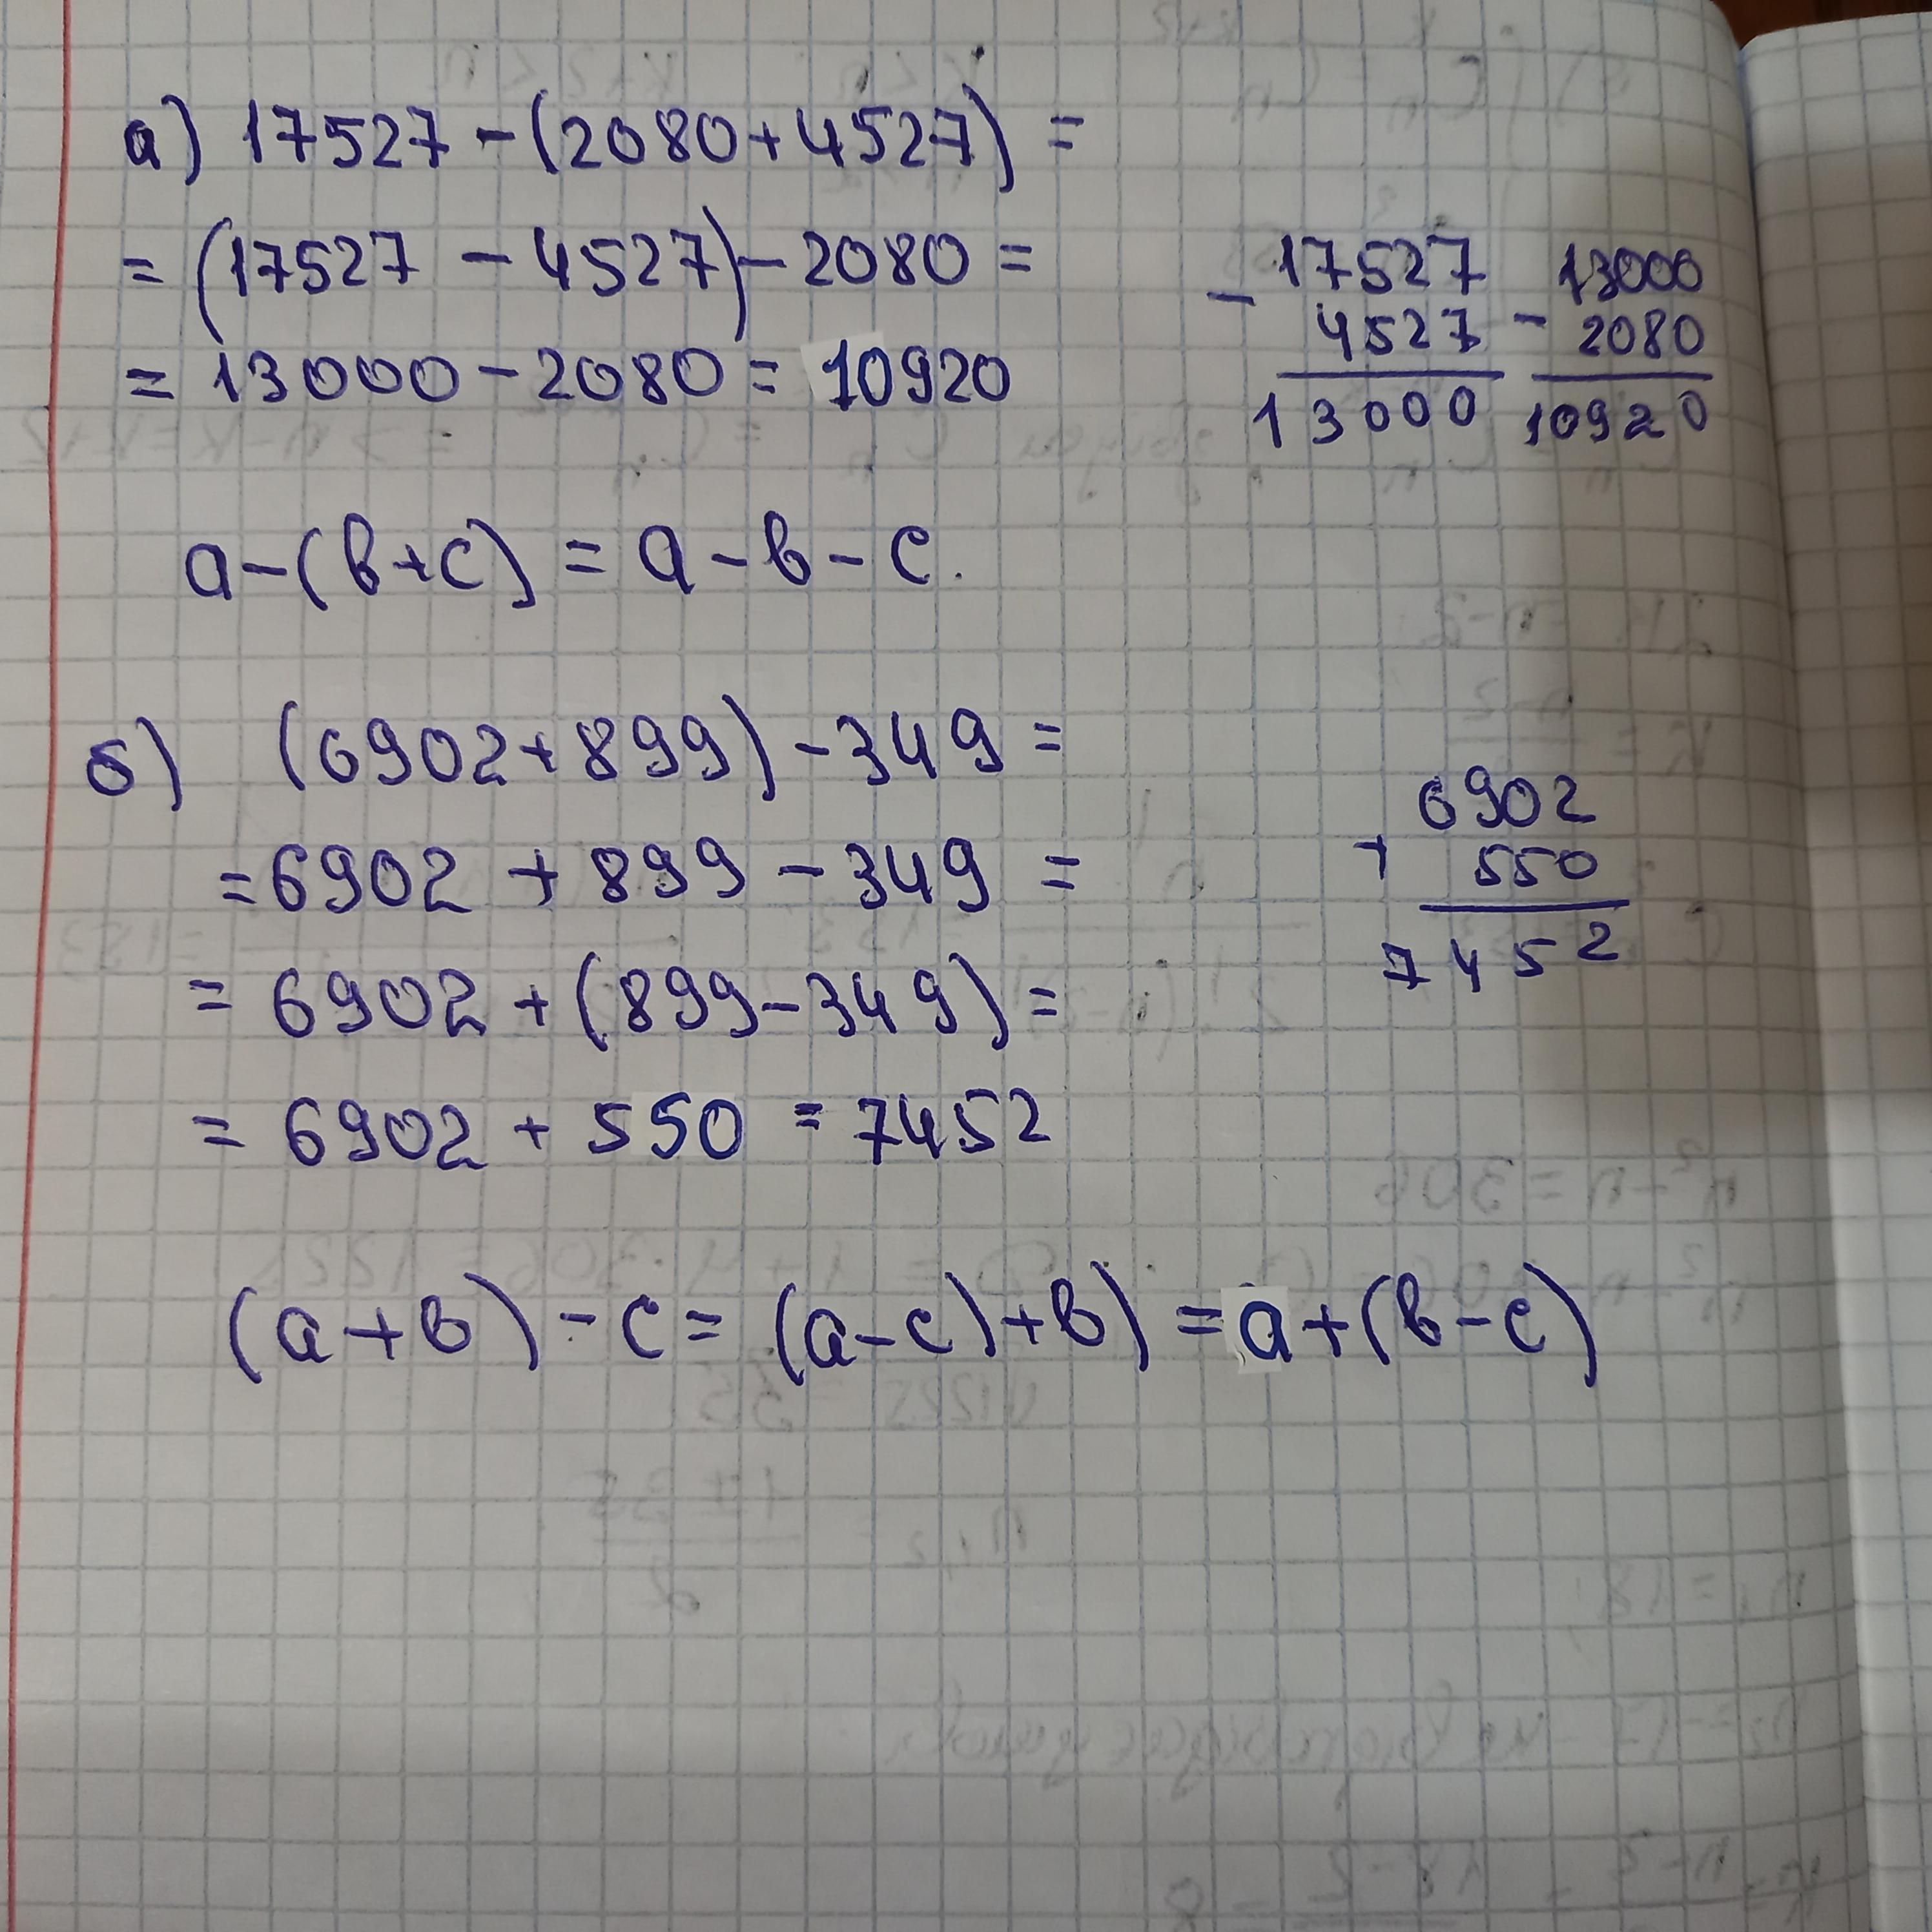 а) 17527 - (2080 + 4527) =
= (17527 - 4527) - 2080 =
= 13000 - 2080 = 10920
- 17527
4527
13000
- 13000
2080
10920
a - (в + c) = a - в - c.
б) (6902 + 899) - 349 =
= 6902 + 899 - 349 =
= 6902 + (899 - 349) =
= 6902 + 550 = 7452
+ 6902
550
7452
(a + в) - c = (a - c) + в) = a + (в - c)